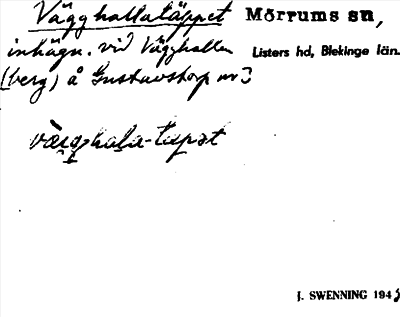 Vägghallatäppet Mörrums sn,
inhägn. vid Vägghallen Listers hd, Blekinge län.
(berg) å Gustavstorp nr 3
J. SWENNING 194